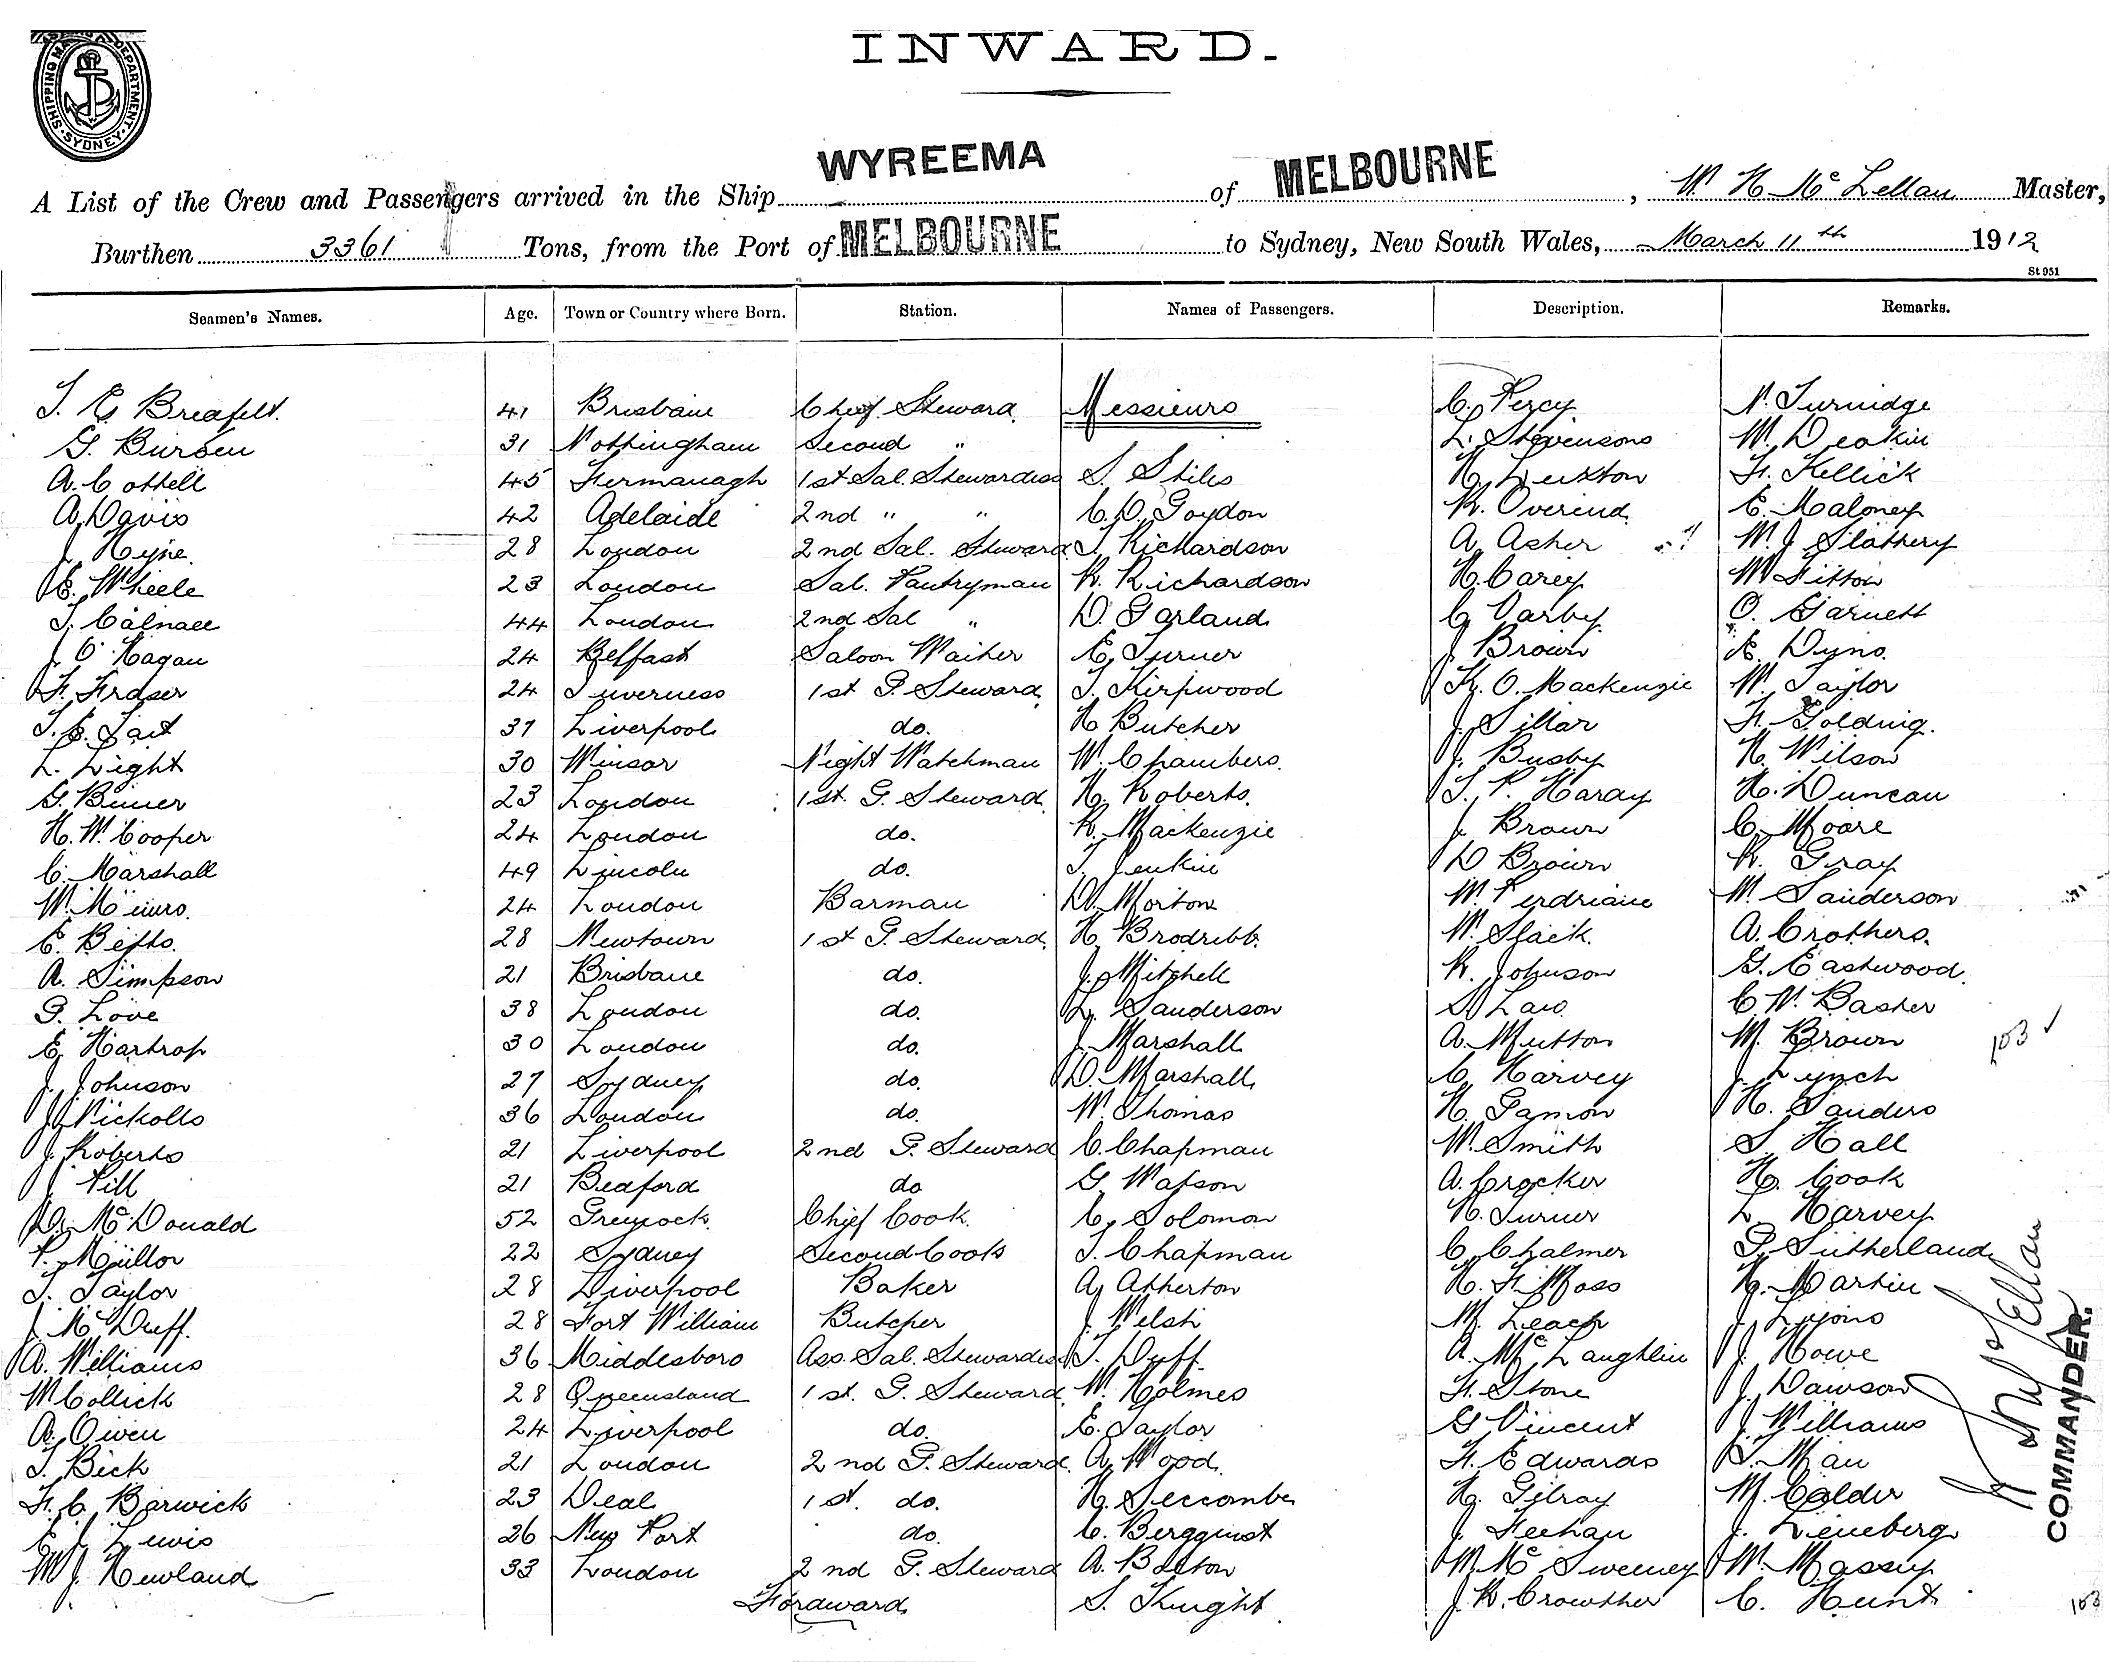 SHIPPING MASTER'S DEPARTMENT · SYDNEY ·
INWARD.
A List of the Crew and Passengers arrived in the Ship WYREEMA of MELBOURNE, W. H. McLellan Master,
Burthen 3361 Tons, from the Port of MELBOURNE to Sydney, New South Wales, March 11th 1912
St 951
Seamen's Names. Age. Town or Country where Born. Station. Names of Passengers. Description. Remarks.
T. E. 41 Brisbane Chief Steward Messieurs C. Percy N. Turnidge
G. Burden 31 Nottingham Second " L. Stevensons W. Deakin
A. Cottell 45 Fermanagh 1st Sal. Stewardess S. Stiles H. Luxton F. Kellick
A. Davis 42 Adelaide 2nd " " C. D. Goydon R. Overend E. Maloney
J. Hyne 28 London 2nd Sal. Steward T. Richardson A. Asher W. J. Slattery
E. Wheele 23 London Sal. Pantryman R. Richardson H. Carey W. Fitton
T. 44 London 2nd Sal " D. Garland C. Darby O. Garnett
J. O'Hagan 24 Belfast Saloon Waiter E. Turner J. Brown E. Dyno
F. Fraser 24 Inverness 1st G. Steward T. Kirpwood K. O. Mackenzie W. Taylor
T. E. Tait 37 Liverpool do. H. Butcher J. Sillar F. Golding.
L. Light 30 Winsor Night Watchman W. Chambers. J. Busby H. Wilson
G. Biner 23 London 1st. G. Steward H. Roberts. T. P. Haray H. Duncan
H. W. Cooper 24 London do. R. Mackenzie J. Brown C. Moore
C. Marshall 49 Lincoln do. T. Jenkin D. Brown R. Gray
W. Munro. 24 London Barman D. Morton W. Perdriane W. Sanderson
E. Betts. 28 Newtown 1st G. Steward. H. Brodribb. W. Slack. A. Crothers.
A. Simpson 21 Brisbane do. J. Mitchell R. Johnson G. Eastwood.
G. Love 38 London do. L. Sanderson S. Law C. W. Basher
E. Hartrop 30 London do. J. Marshall A. Mutton M. Brown 103 ✓
J. Johnson 27 Sydney do. D. Marshall C. Harvey J. Lynch
J. Nickolls 36 London do. W. Thomas H. Gamon H. Sanders
J. Roberts 21 Liverpool 2nd G. Steward C. Chapman W. Smith S. Hall
J. Pill 21 Bedford do G. Watson A. Crocker H. Cook
D. McDonald 52 Greenock. Chief Cook. C. Solomon H. Turner L. Harvey
P. Mullor 22 Sydney Second Cook T. Chapman C. Chalmer G. Sutherland
T. Taylor 28 Liverpool Baker A. Atherton H. F. Moss H. Martin
J. McDuff. 28 Fort William Butcher J. Welsh M. Leach J. Lyons
A. Williams 36 Middlesboro Ass. Sal. Stewardess T. Duff. A. McLaughlin J. Howe
W. Collick 28 Queensland 1st. G. Steward W. Holmes F. Stone J. Dawson
A. Owen 24 Liverpool do. E. Taylor G. Vincent J. Williams
T. Bick 21 London 2nd G. Steward. A. Wood. F. Edwards S. Man
F. C. Barwick 23 Deal 1st. do. H. Seccombe H. Gilray M. Calder
E. J. Lewis 26 New Port do. C. Bergquist J. Feehan J. Lineberg
W. J. Newland 33 London 2nd G. Steward A. Bolton W. McSweeney W. Massey
Foraward S. Knight J. R. Crowther C. Hunt 103
W. H. McLellan
COMMANDER.